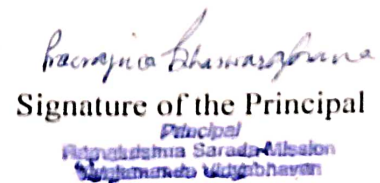 Pravrajika Bhaswaraprana
Signature of the Principal
Principal
Ramakrishna Sarada Mission
Vivekananda Vidyabhavan